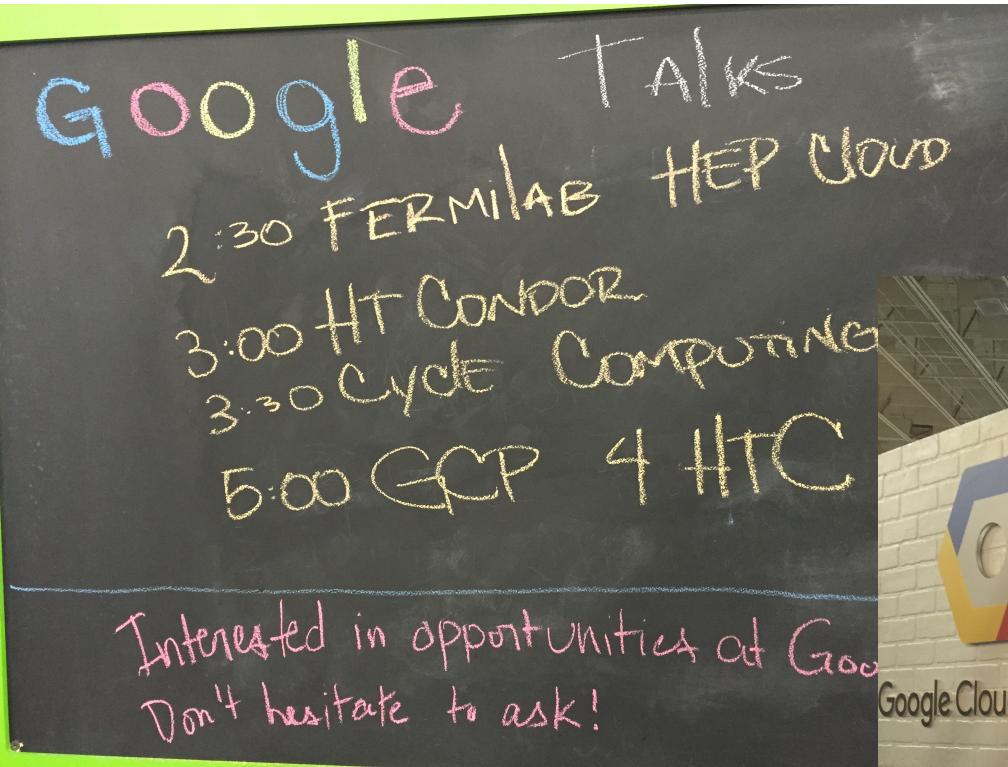 Google Talks
2:30 FERMILAB HEP CLOUD
3:00 HT CONDOR
3:30 CYCLE COMPUTING
5:00 GCP 4 HTC
Interested in opportunities at Goo
Don't hesitate to ask!
Google Clou